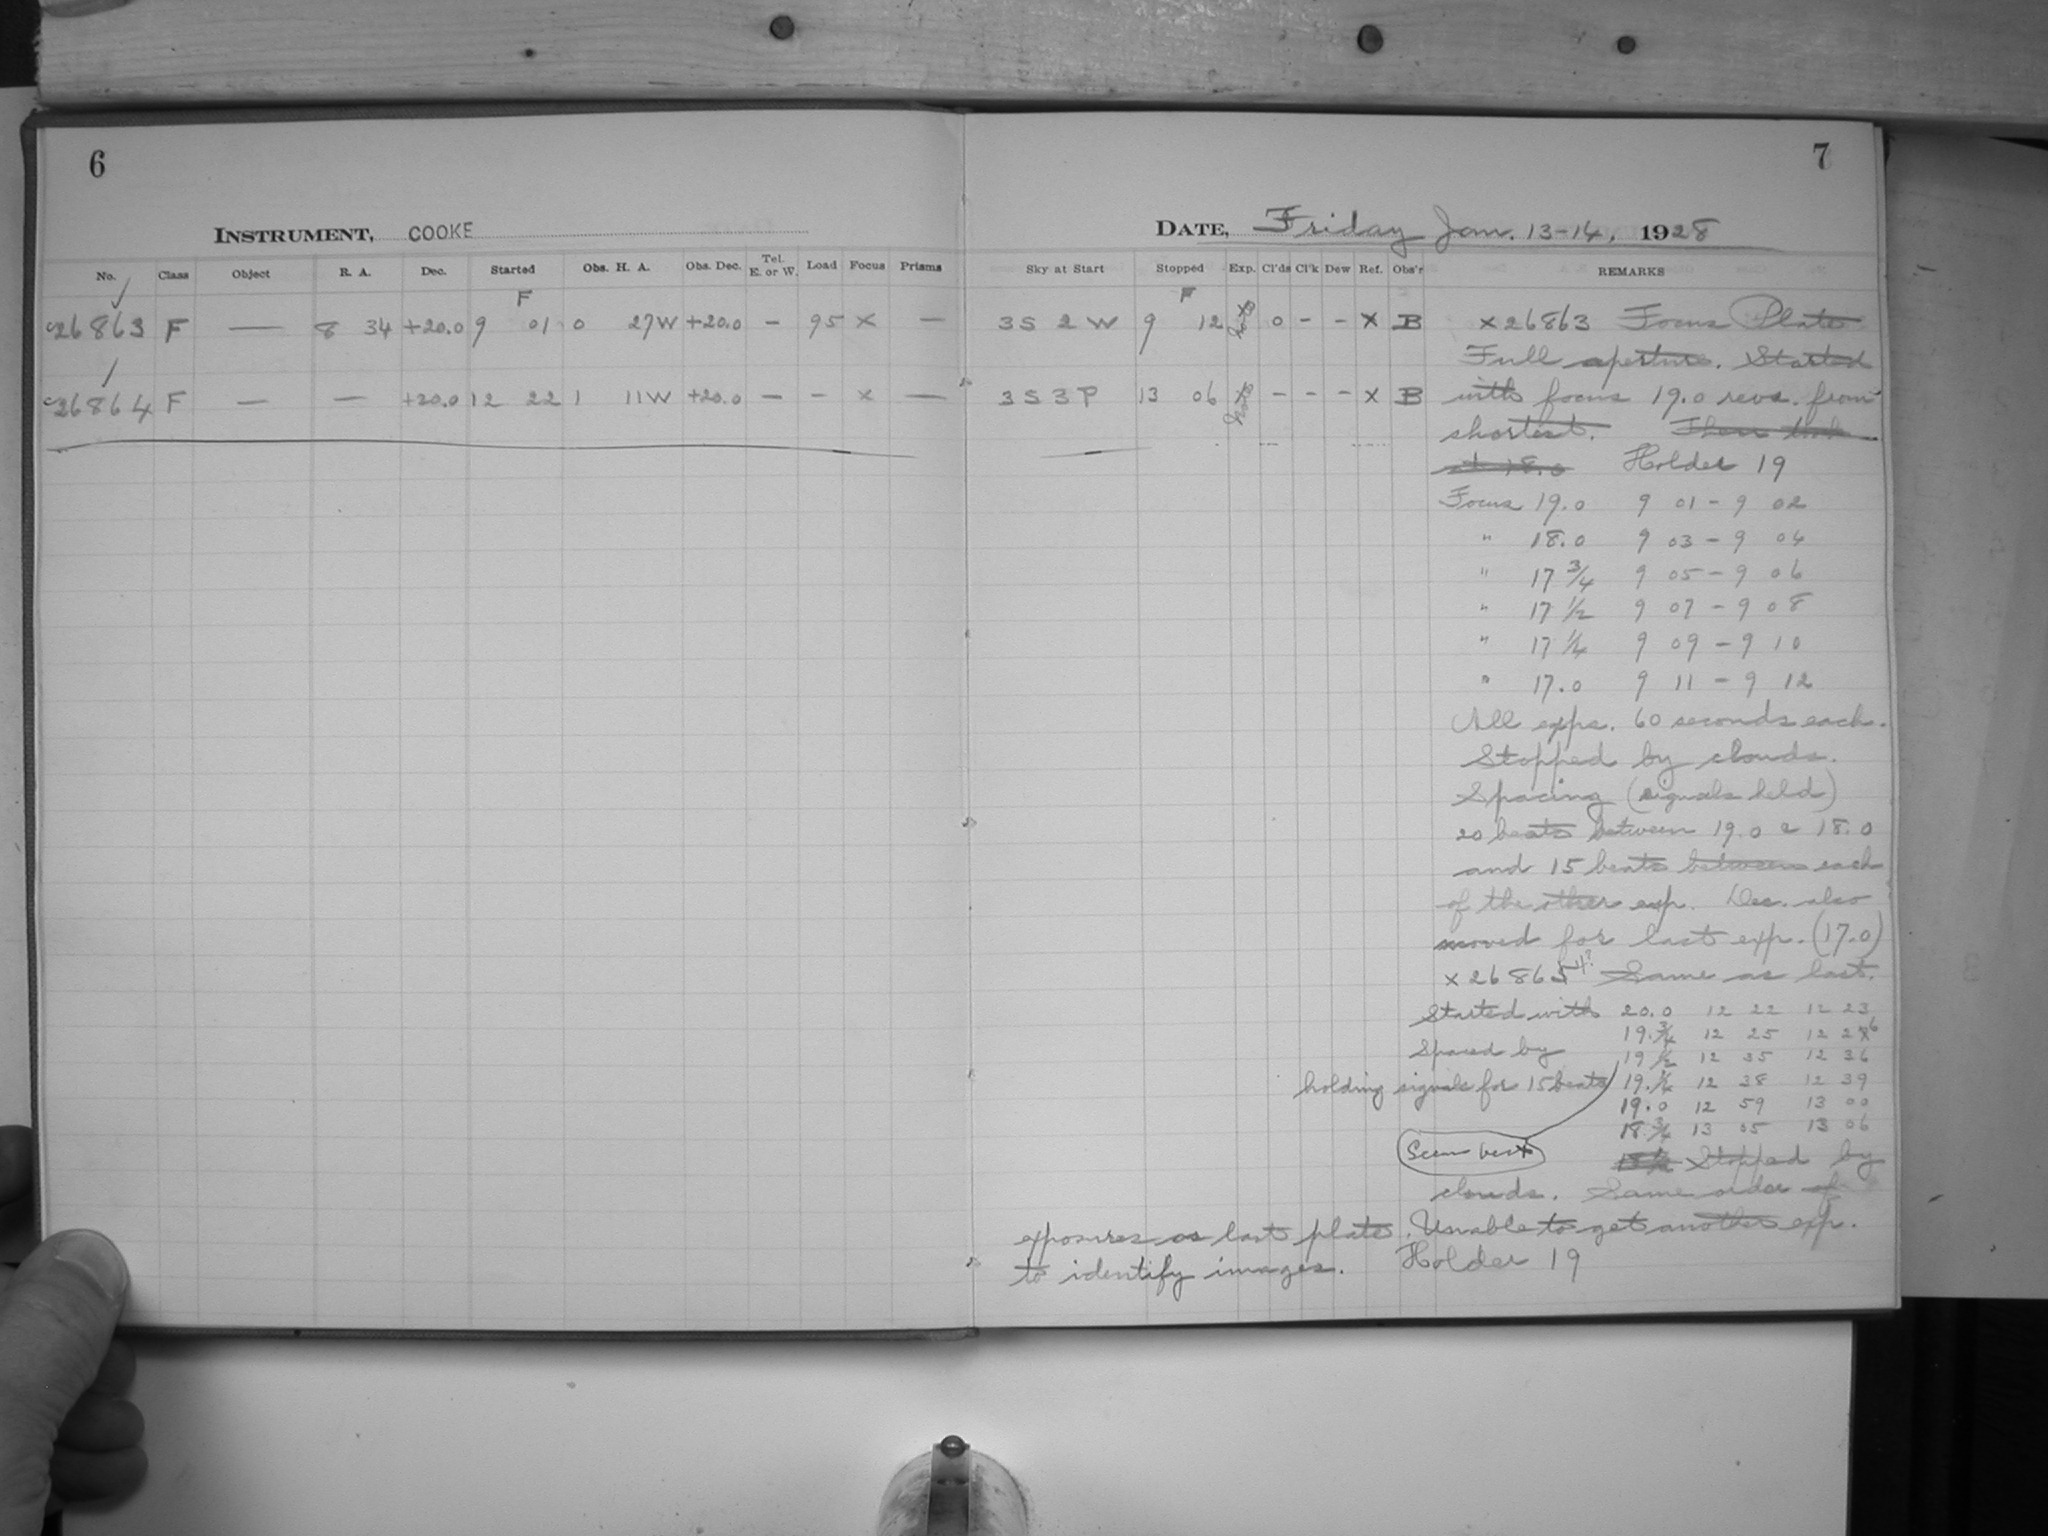 6
INSTRUMENT, COOKE
No. Class Object R. A. Dec. Started Obs. H. A. Obs. Dec. Tel. E. or W. Load Focus Prisms
F
26863 F — 8 34 +20.0 9 01 0 27W +20.0 – 95 × —
26864 F — — +20.0 12 22 1 11W +20.0 — – × —
7
DATE, Friday Jan. 13-14, 1928
Sky at Start Stopped Exp. Cl'ds Cl'k Dew Ref. Obs'r REMARKS
F
3 S 2 W 9 12 0 – – × B
3 S 3 P 13 06 – – – × B
× 26863 Focus Plate
Full aperture. Started
with focus 19.0 revs. from
shortest. Then took
at 18.0 Holder 19
Focus 19.0 9 01 – 9 02
" 18.0 9 03 – 9 04
" 17 3/4 9 05 – 9 06
" 17 1/2 9 07 – 9 08
" 17 1/4 9 09 – 9 10
" 17.0 9 11 – 9 12
All exps. 60 seconds each.
Stopped by clouds.
Spacing (signals held)
20 beats between 19.0 & 18.0
and 15 beats between each
of the other exp. Dec. also
moved for last exp. (17.0)
× 26865 4? Same as last.
Started with 20.0 12 22 12 23
19.3/4 12 25 12 26
Spaced by 19 1/2 12 35 12 36
holding signals for 15 beats 19.1/4 12 38 12 39
19.0 12 59 13 00
18.3/4 13 05 13 06
Seem best
Stopped by
clouds. Same order of
exposures as last plate. Unable to get another exp.
to identify images. Holder 19